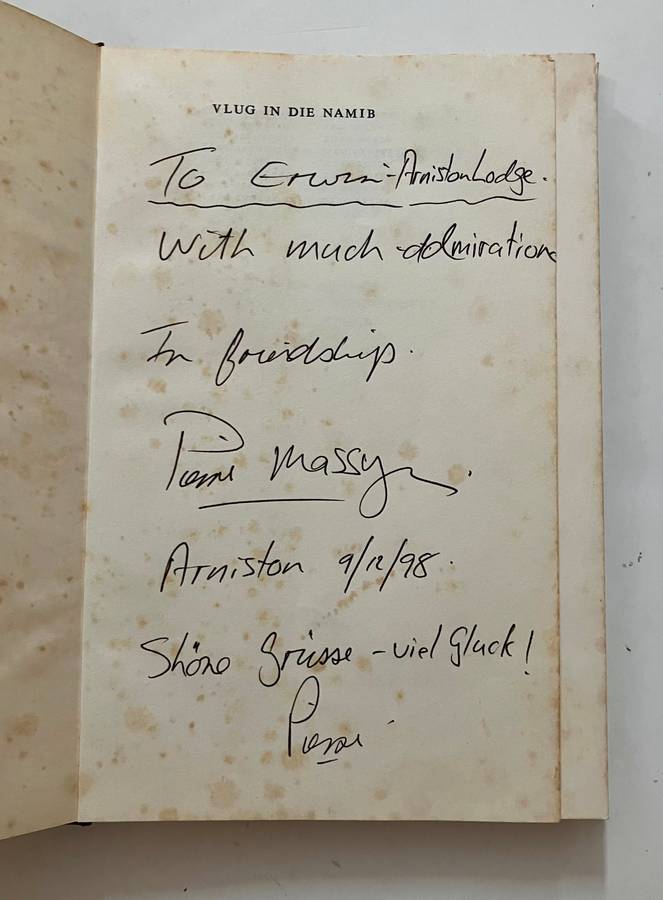 VLUG IN DIE NAMIB
To Erwin - Arniston Lodge.
With much admiration
In friendship.
Pierre Massyn.
Arniston 9/12/98.
Shöne Grüsse - viel Gluck!
Pierre